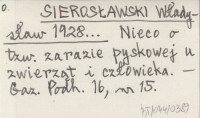 0.
SIEROSŁAWSKI Włady-
sław 1928... Nieco o
tzw. zarazie pyskowej u
zwierząt i człowieka. —
Gaz. Podh. 16, nr 15.